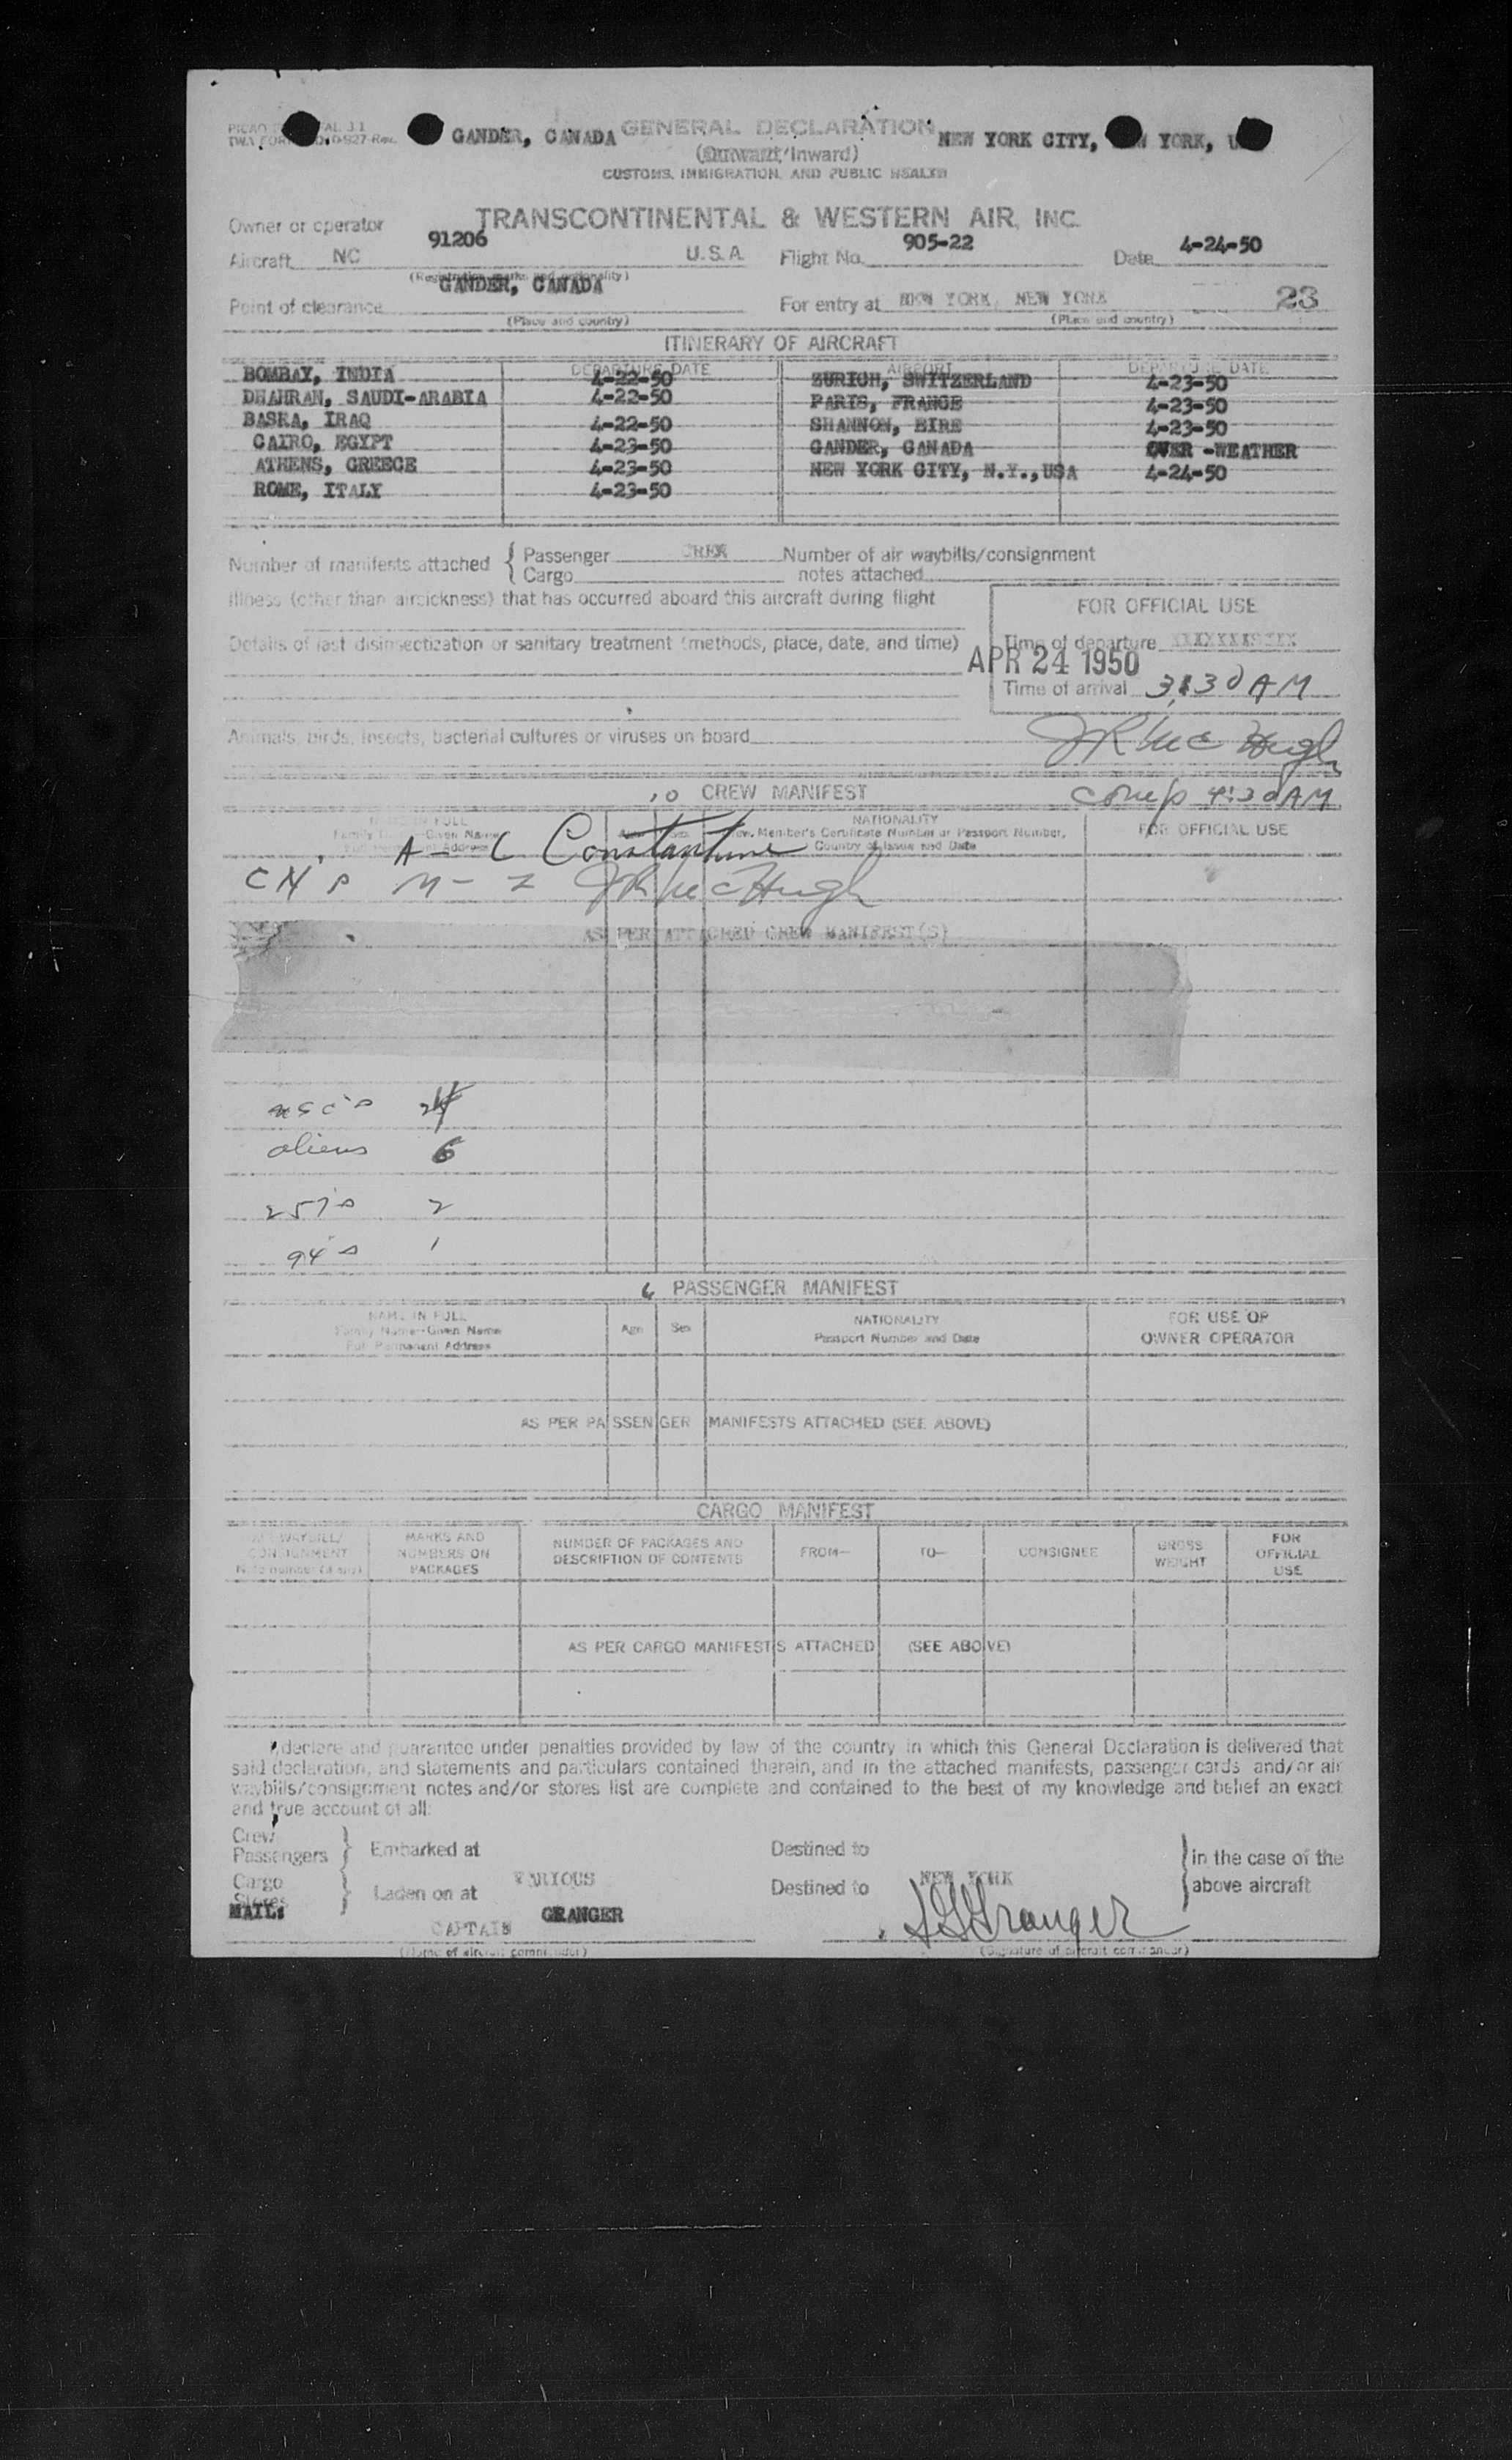 GANDER, CANADA GENERAL DECLARATION NEW YORK CITY, YORK, U
TWA FORM D-927-Rev.
(Outward/Inward)
CUSTOMS, IMMIGRATION, AND PUBLIC HEALTH
Owner or operator TRANSCONTINENTAL & WESTERN AIR, INC.
Aircraft NC 91206 U.S.A. Flight No. 905-22 Date 4-24-50
(Registration marks and nationality)
Point of clearance GANDER, CANADA For entry at NEW YORK, NEW YORK 23
(Place and country) (Place and country)
ITINERARY OF AIRCRAFT
DEPARTURE DATE AIRPORT DEPARTURE DATE
BOMBAY, INDIA 4-22-50 ZURICH, SWITZERLAND 4-23-50
DHAHRAN, SAUDI-ARABIA 4-22-50 PARIS, FRANCE 4-23-50
BASRA, IRAQ 4-22-50 SHANNON, EIRE 4-23-50
CAIRO, EGYPT 4-23-50 GANDER, CANADA OVER-WEATHER
ATHENS, GREECE 4-23-50 NEW YORK CITY, N.Y., USA 4-24-50
ROME, ITALY 4-23-50
Number of manifests attached { Passenger CREW Number of air waybills/consignment
Cargo notes attached
Illness (other than airsickness) that has occurred aboard this aircraft during flight
FOR OFFICIAL USE
Details of last disinsectization or sanitary treatment (methods, place, date, and time)
Time of departure
APR 24 1950
Time of arrival 3:30 AM
Animals, birds, insects, bacterial cultures or viruses on board
JR McHugh
10 CREW MANIFEST
comp 4:30 AM
NAME IN FULL NATIONALITY
Family Name-Given Name Age Sex Crew Member's Certificate Number or Passport Number, FOR OFFICIAL USE
Full Permanent Address Country of Issue and Date
A - L Constantine
CN's M - Z JR McHugh
AS PER ATTACHED CREW MANIFEST(S)
USC's 24
aliens 6
257's 2
94's 1
6 PASSENGER MANIFEST
NAME IN FULL NATIONALITY FOR USE OF
Family Name-Given Name Age Sex Passport Number and Date OWNER OPERATOR
Full Permanent Address
AS PER PASSENGER MANIFESTS ATTACHED (SEE ABOVE)
CARGO MANIFEST
AIR WAYBILL/ MARKS AND NUMBER OF PACKAGES AND GROSS FOR
CONSIGNMENT NUMBERS ON DESCRIPTION OF CONTENTS FROM— TO— CONSIGNEE WEIGHT OFFICIAL
Note number (if any) PACKAGES USE
AS PER CARGO MANIFESTS ATTACHED (SEE ABOVE)
I declare and guarantee under penalties provided by law of the country in which this General Declaration is delivered that
said declaration, and statements and particulars contained therein, and in the attached manifests, passenger cards and/or air
waybills/consignment notes and/or stores list are complete and contained to the best of my knowledge and belief an exact
and true account of all:
Crew
Passengers } Embarked at Destined to } in the case of the
Cargo
Stores } Laden on at VARIOUS Destined to NEW YORK above aircraft
MAIL:
CAPTAIN GRANGER
(Name of aircraft commander) (Signature of aircraft commander)